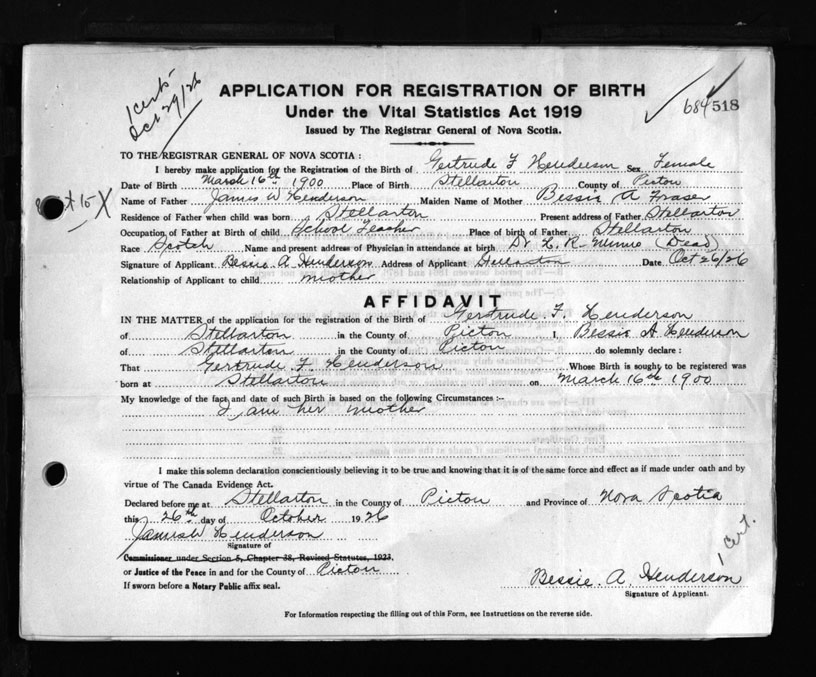 1 cert-
Oct 29/26
APPLICATION FOR REGISTRATION OF BIRTH
Under the Vital Statistics Act 1919
684 518
Issued by The Registrar General of Nova Scotia.
TO THE REGISTRAR GENERAL OF NOVA SCOTIA :
I hereby make application for the Registration of the Birth of Gertrude F Henderson Sex Female
Date of Birth March 16th 1900 Place of Birth Stellarton County of Pictou
Name of Father James W Henderson Maiden Name of Mother Bessie A Fraser
Residence of Father when child was born Stellarton Present address of Father Stellarton
Occupation of Father at Birth of child School Teacher Place of birth of Father Stellarton
Race Scotch Name and present address of Physician in attendance at birth Dr H. R. Munro (Dead)
Signature of Applicant Bessie A Henderson Address of Applicant Stellarton Date Oct 26/26
Relationship of Applicant to child mother
AFFIDAVIT
IN THE MATTER of the application for the registration of the Birth of Gertrude F. Henderson
of Stellarton in the County of Pictou I, Bessie A Henderson
of Stellarton in the County of Pictou do solemnly declare :
That Gertrude F. Henderson Whose Birth is sought to be registered was
born at Stellarton on March 16th 1900
My knowledge of the fact and date of such Birth is based on the following Circumstances :—
I am her mother
I make this solemn declaration conscientiously believing it to be true and knowing that it is of the same force and effect as if made under oath and by
virtue of The Canada Evidence Act.
Declared before me at Stellarton in the County of Pictou and Province of Nova Scotia
this 26th day of October 1926
James W Henderson
Signature of
Commissioner under Section 5, Chapter 38, Revised Statutes, 1923,
or Justice of the Peace in and for the County of Pictou
1 cert.
If sworn before a Notary Public affix seal.
Bessie. A. Henderson
Signature of Applicant.
For Information respecting the filling out of this Form, see Instructions on the reverse side.